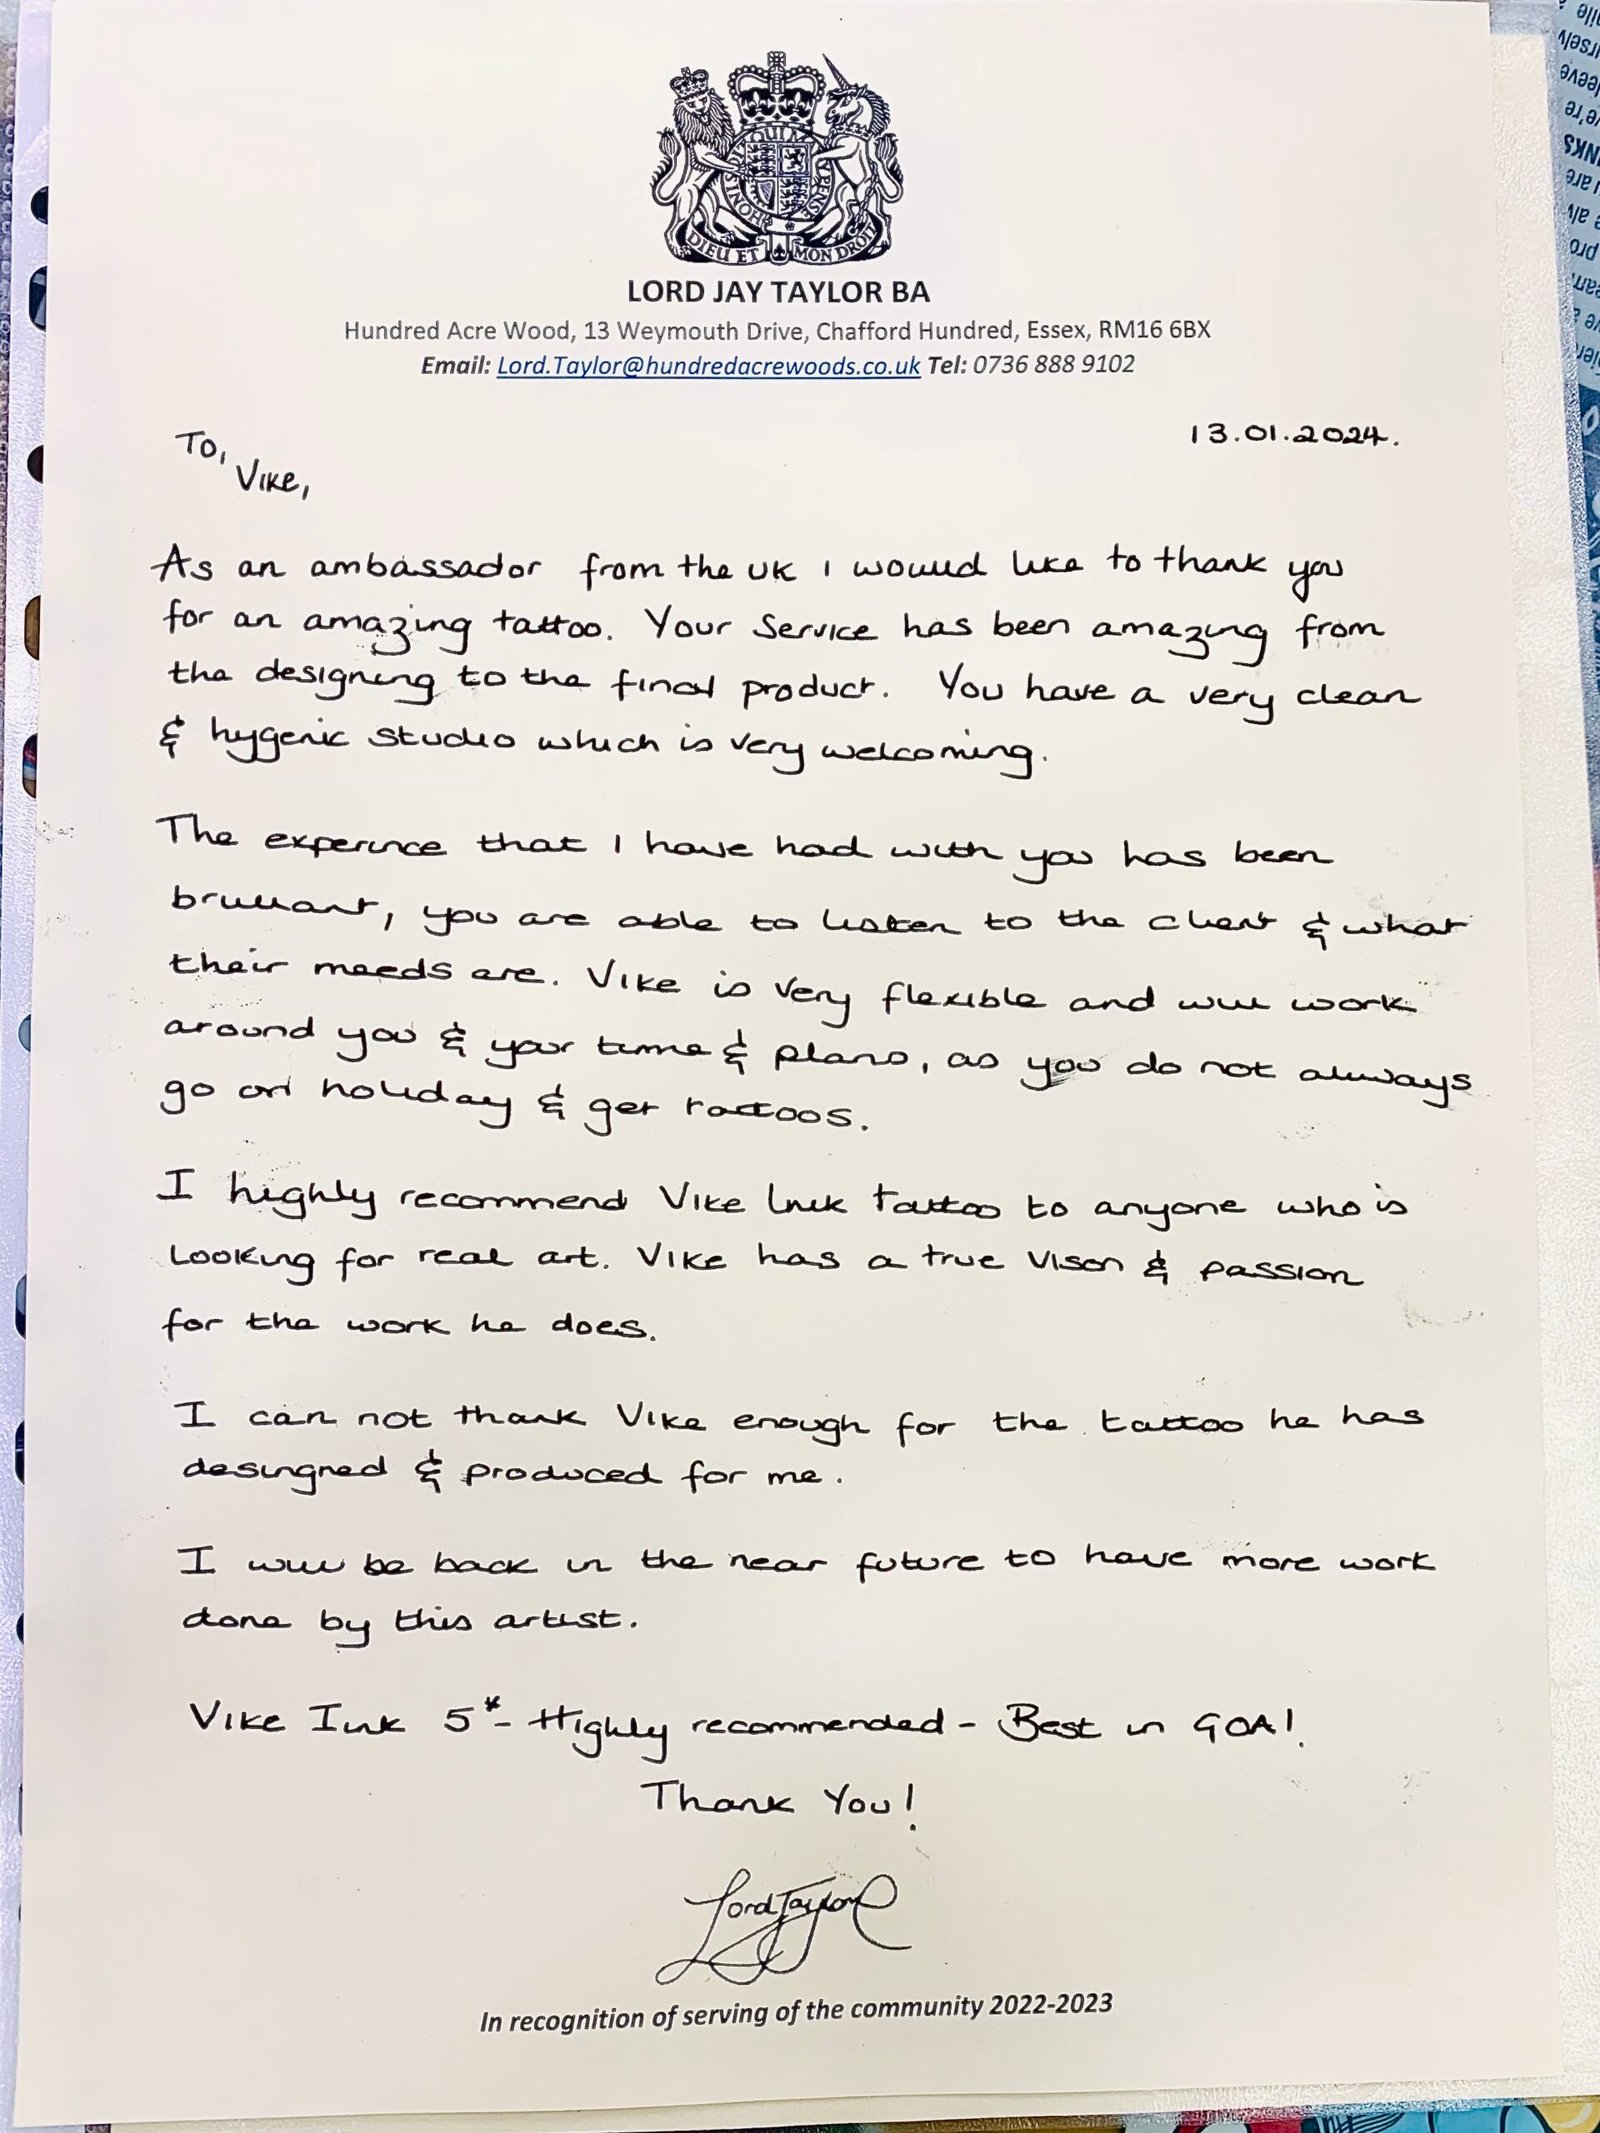 HONI SOIT QUI MAL Y PENSE
DIEU ET MON DROIT
LORD JAY TAYLOR BA
Hundred Acre Wood, 13 Weymouth Drive, Chafford Hundred, Essex, RM16 6BX
Email: Lord.Taylor@hundredacrewoods.co.uk Tel: 0736 888 9102
13.01.2024.
To,
Vike,
As an ambassador from the UK I would like to thank you
for an amazing tattoo. Your Service has been amazing from
the designing to the final product. You have a very clean
& hygenic studio which is very welcoming.
The experince that I have had with you has been
brilliant, you are able to listen to the client & what
their needs are. Vike is very flexible and will work
around you & your time & plans, as you do not always
go on holiday & get tattoos.
I highly recommend Vike Ink tattoo to anyone who is
looking for real art. Vike has a true vison & passion
for the work he does.
I can not thank Vike enough for the tattoo he has
desingned & produced for me.
I will be back in the near future to have more work
done by this artist.
Vike Ink 5*- Highly recommended - Best in GOA!
Thank You!
Lord Taylor
In recognition of serving of the community 2022-2023